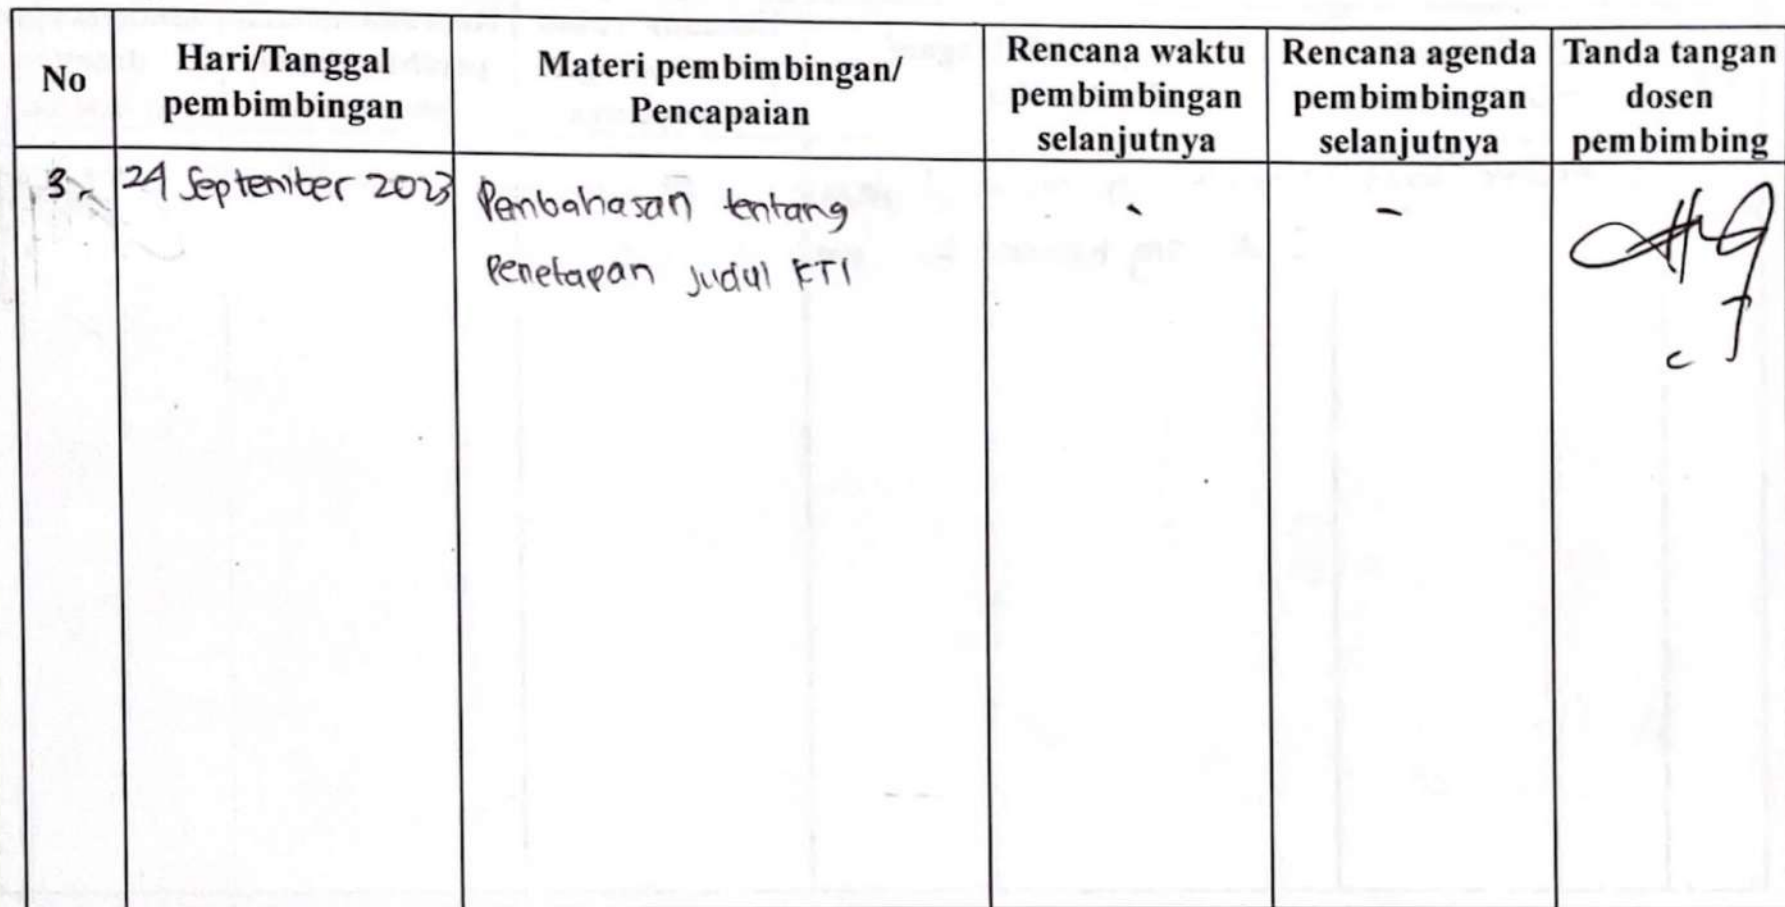 No
Hari/Tanggal
pembimbingan
Materi pembimbingan/
Pencapaian
Rencana waktu
pembimbingan
selanjutnya
Rencana agenda
pembimbingan
selanjutnya
Tanda tangan
dosen
pembimbing
3
24 September 2023
Penbahasan tentang
Penetapan Judul KTI
-
-